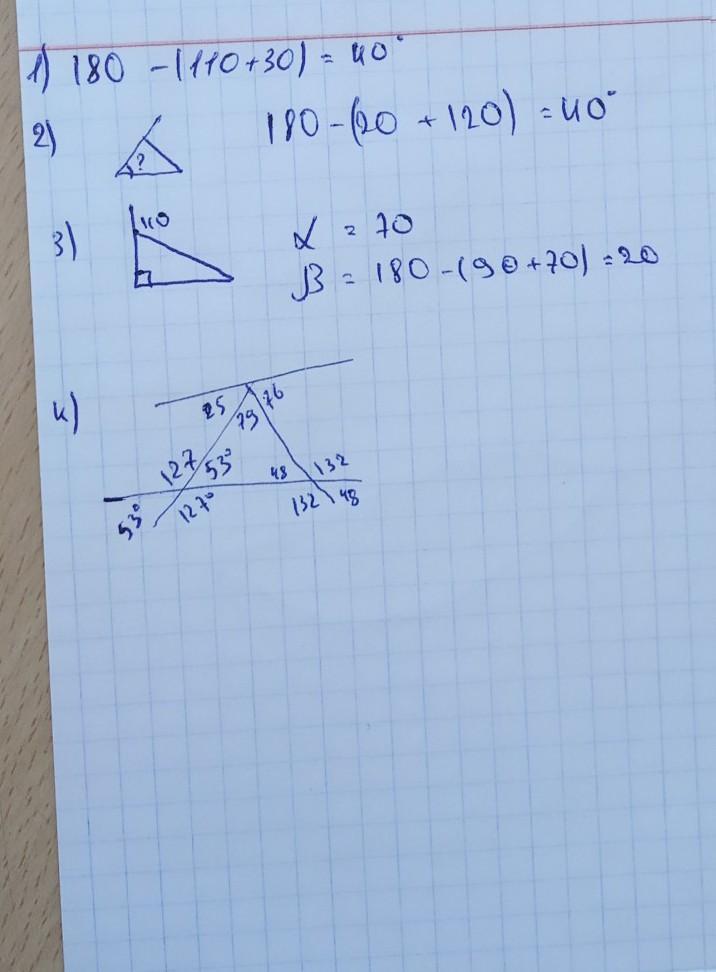 1) 180 - (110+30) = 40°
2) ? 180 - (20 + 120) = 40°
3) 110 α = 70
β = 180 - (90 + 70) = 20
4)
25 79 76
127 53° 48 132
53° 127° 132 48